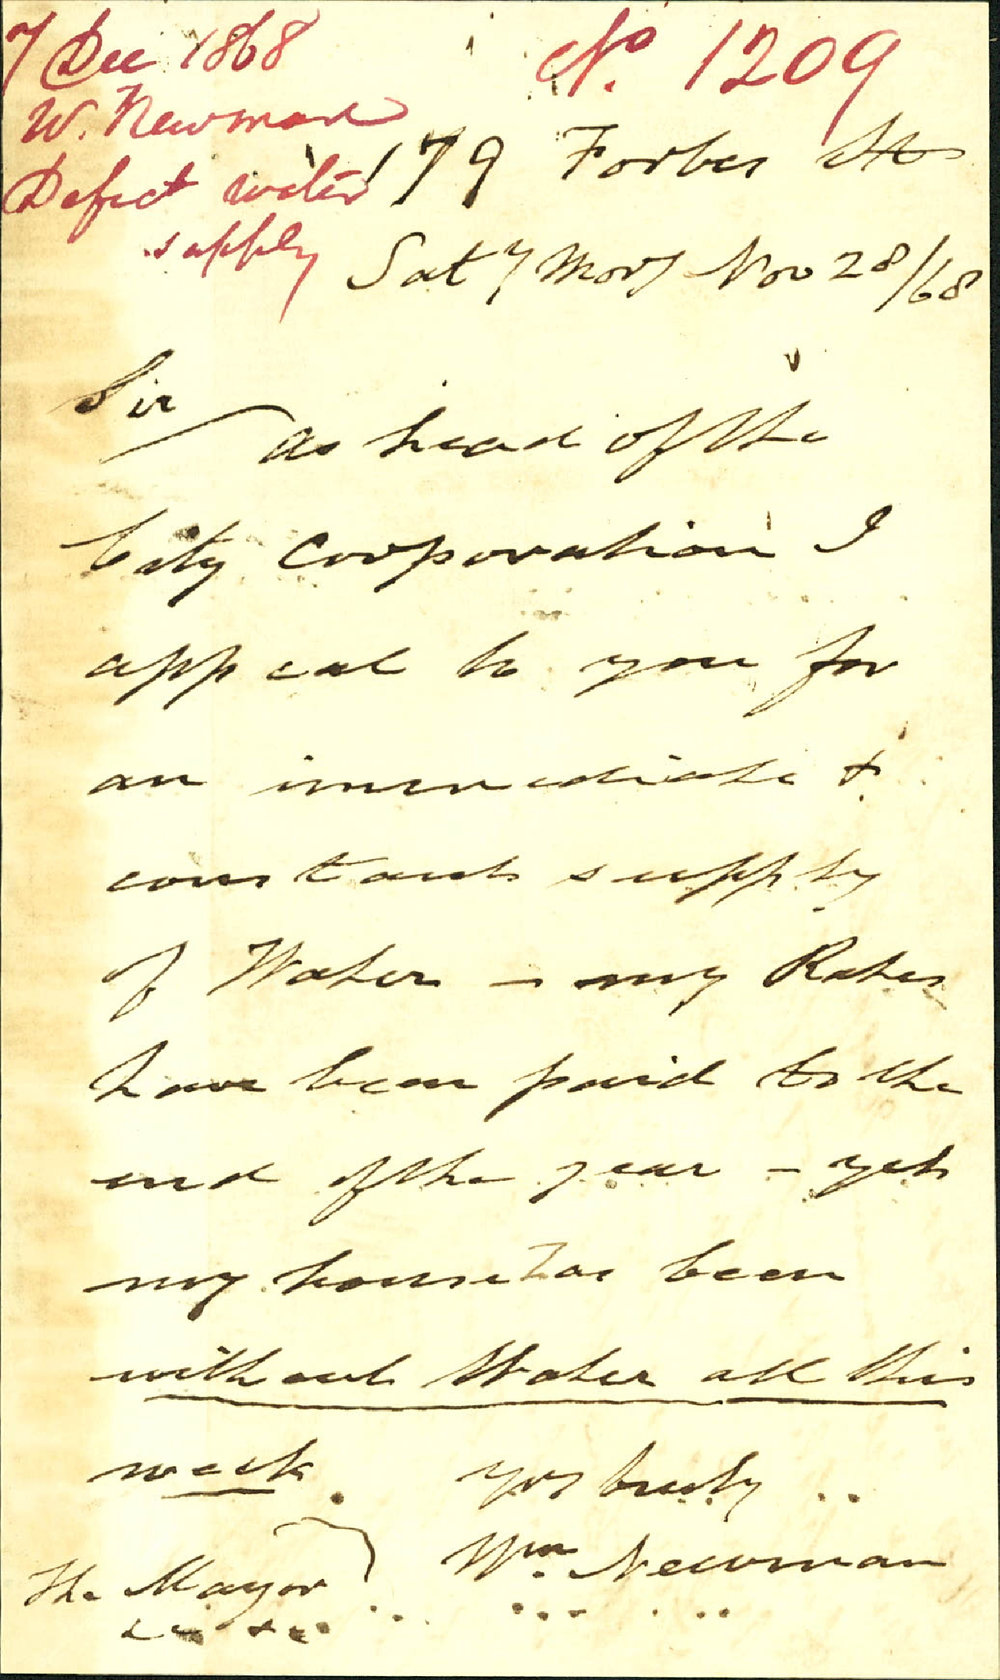 7 Dec 1868
No. 1209
W. Newman
Defect water
supply
179 Forbes St
Saty Morg Nov 28/68
Sir
as head of the
City Corporation I
appeal to you for
an immediate &
constant supply
of Water - my Rates
have been paid to the
end of the year - yet
my house has been
without Water all this
week. yrs truly
Wm. Newman
The Mayor